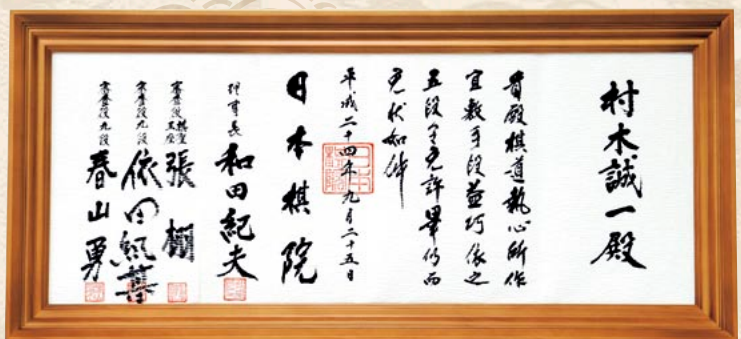 村木誠一殿
貴殿棋道執心所作
宜敷手段益巧依之
五段令免許畢仍而
免状如件
平成二十四年九月二十五日
日本棋院
理事長 和田紀夫
審査役 棋聖 王座 張栩
審査役 九段 依田紀基
審査役 九段 春山勇